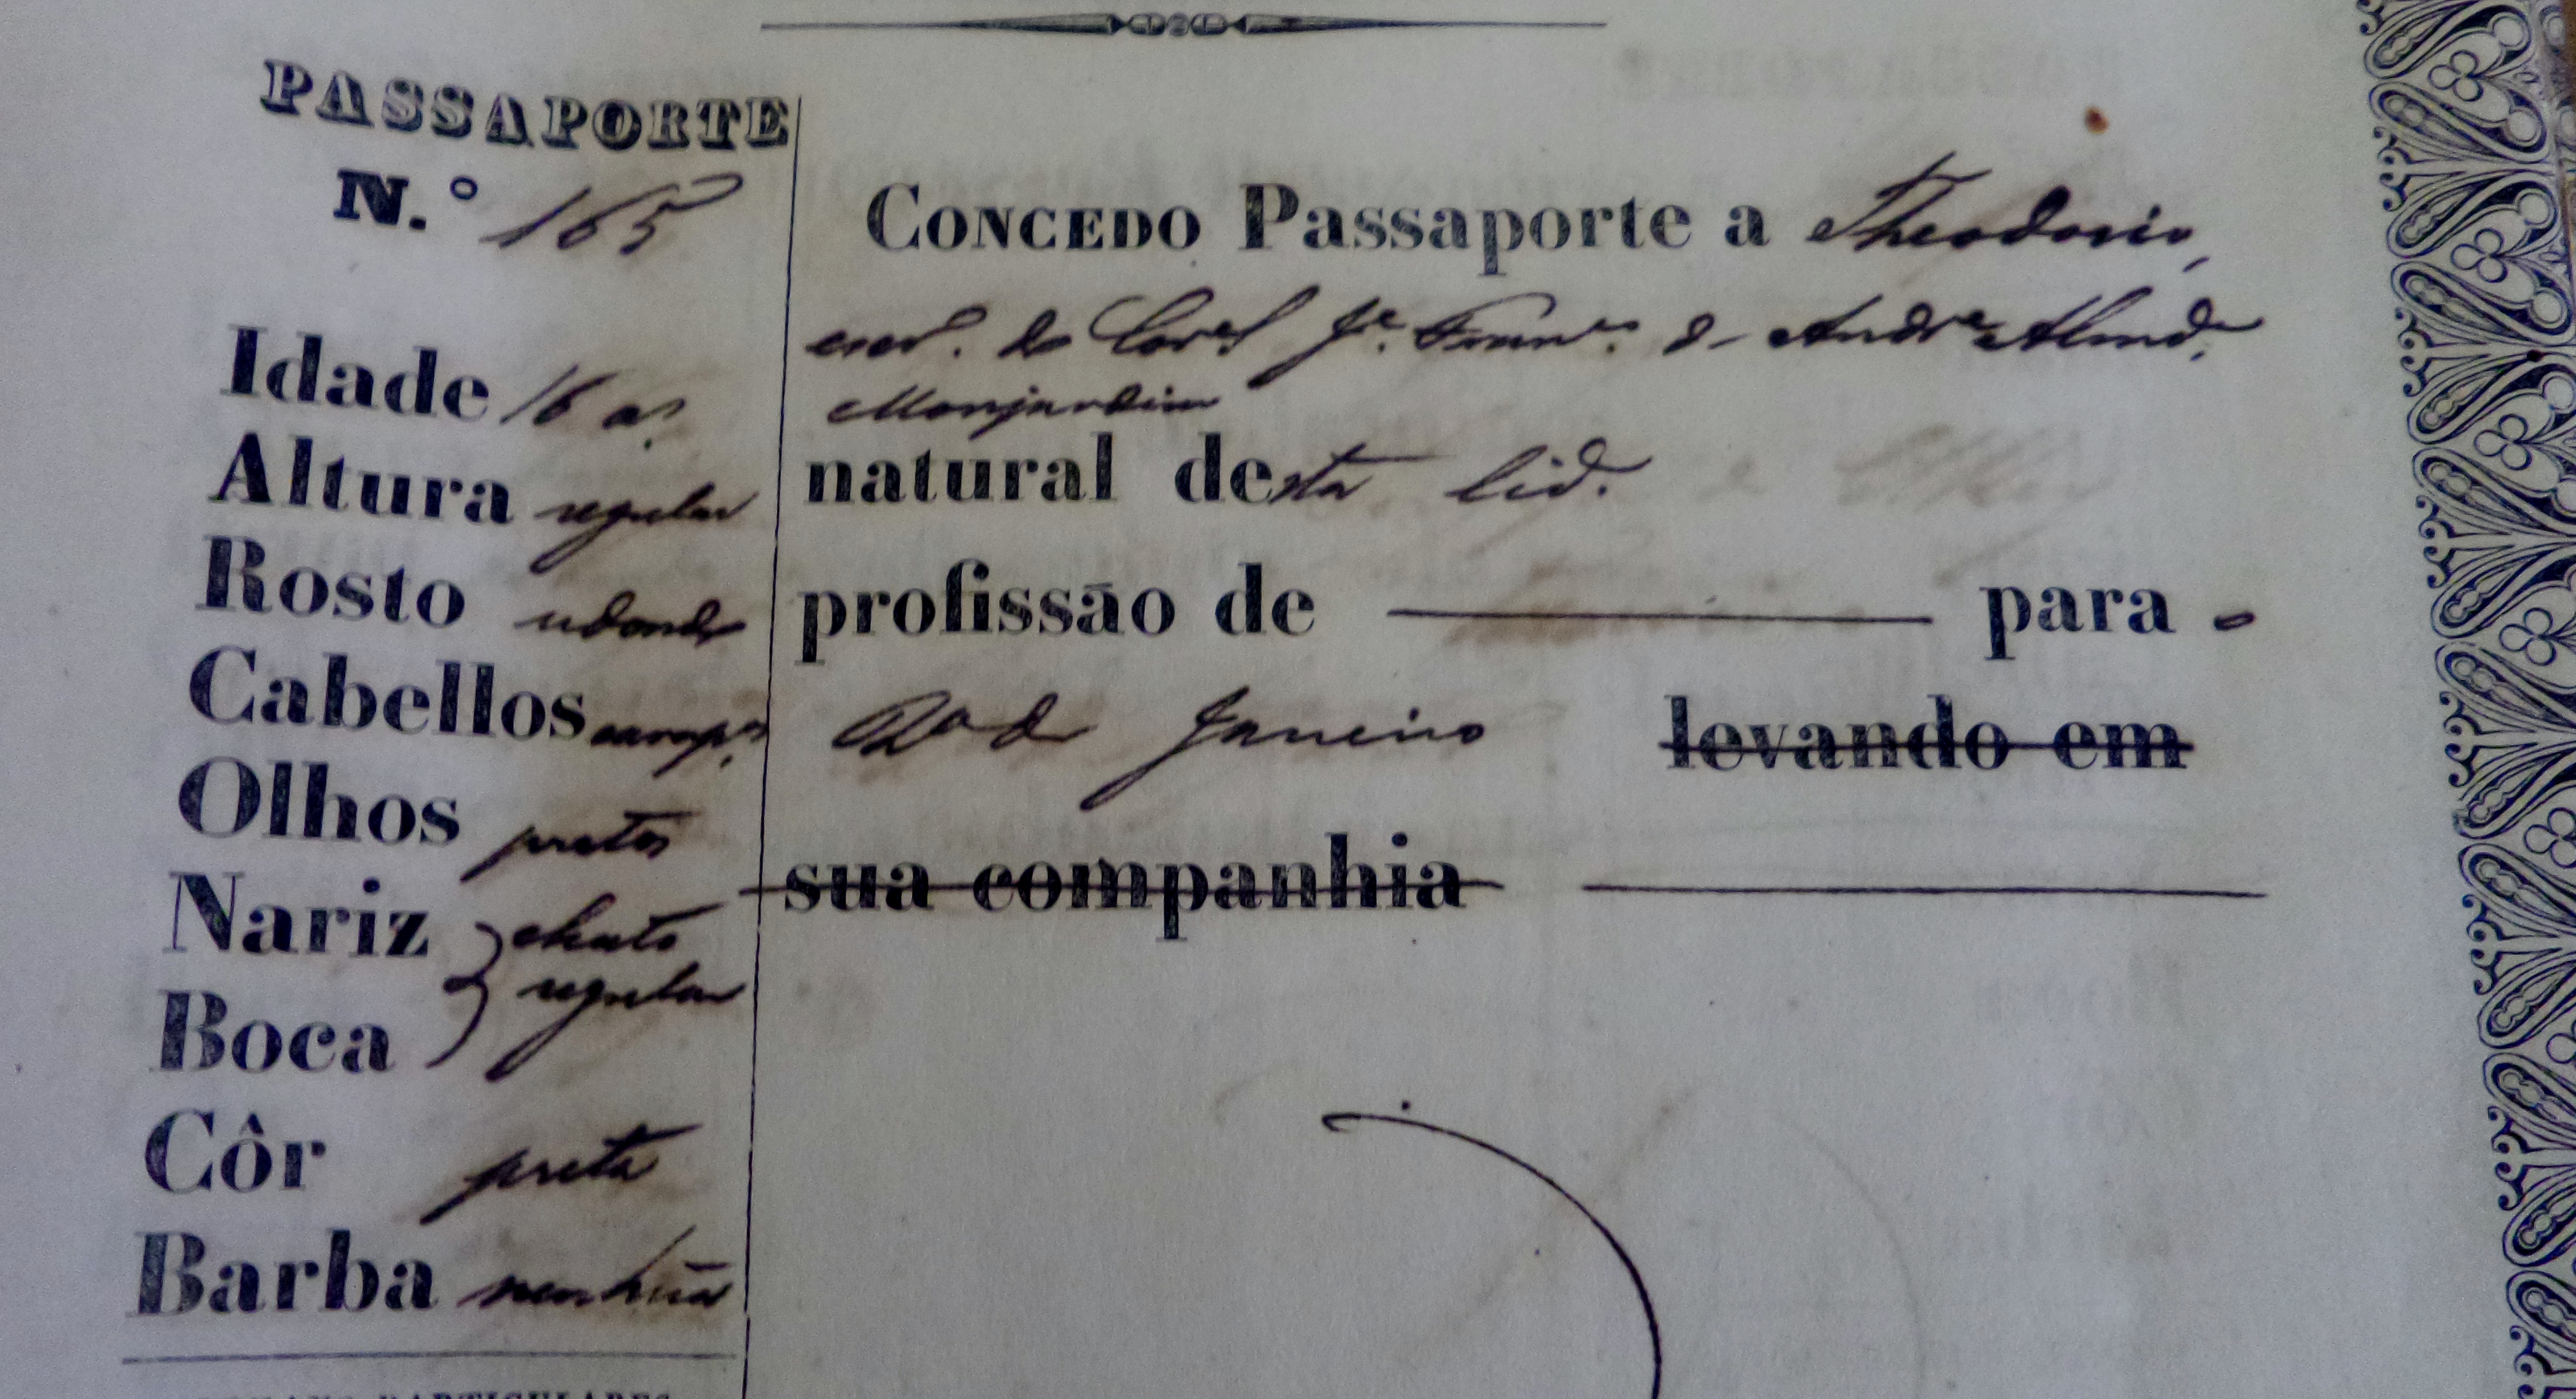 PASSAPORTE
N.º 165
Idade 16 a.s
Altura regular
Rosto redondo
Cabellos carap.os
Olhos pretos
Nariz chato
Boca regular
Côr preta
Barba nenhũa
CONCEDO Passaporte a Theodorio,
escr.o do Cor.el J.e Fran.co d' And.e Almd.a
Monjardim
natural desta Cid.e
profissão de para o
R.o de Janeiro levando em
sua companhia